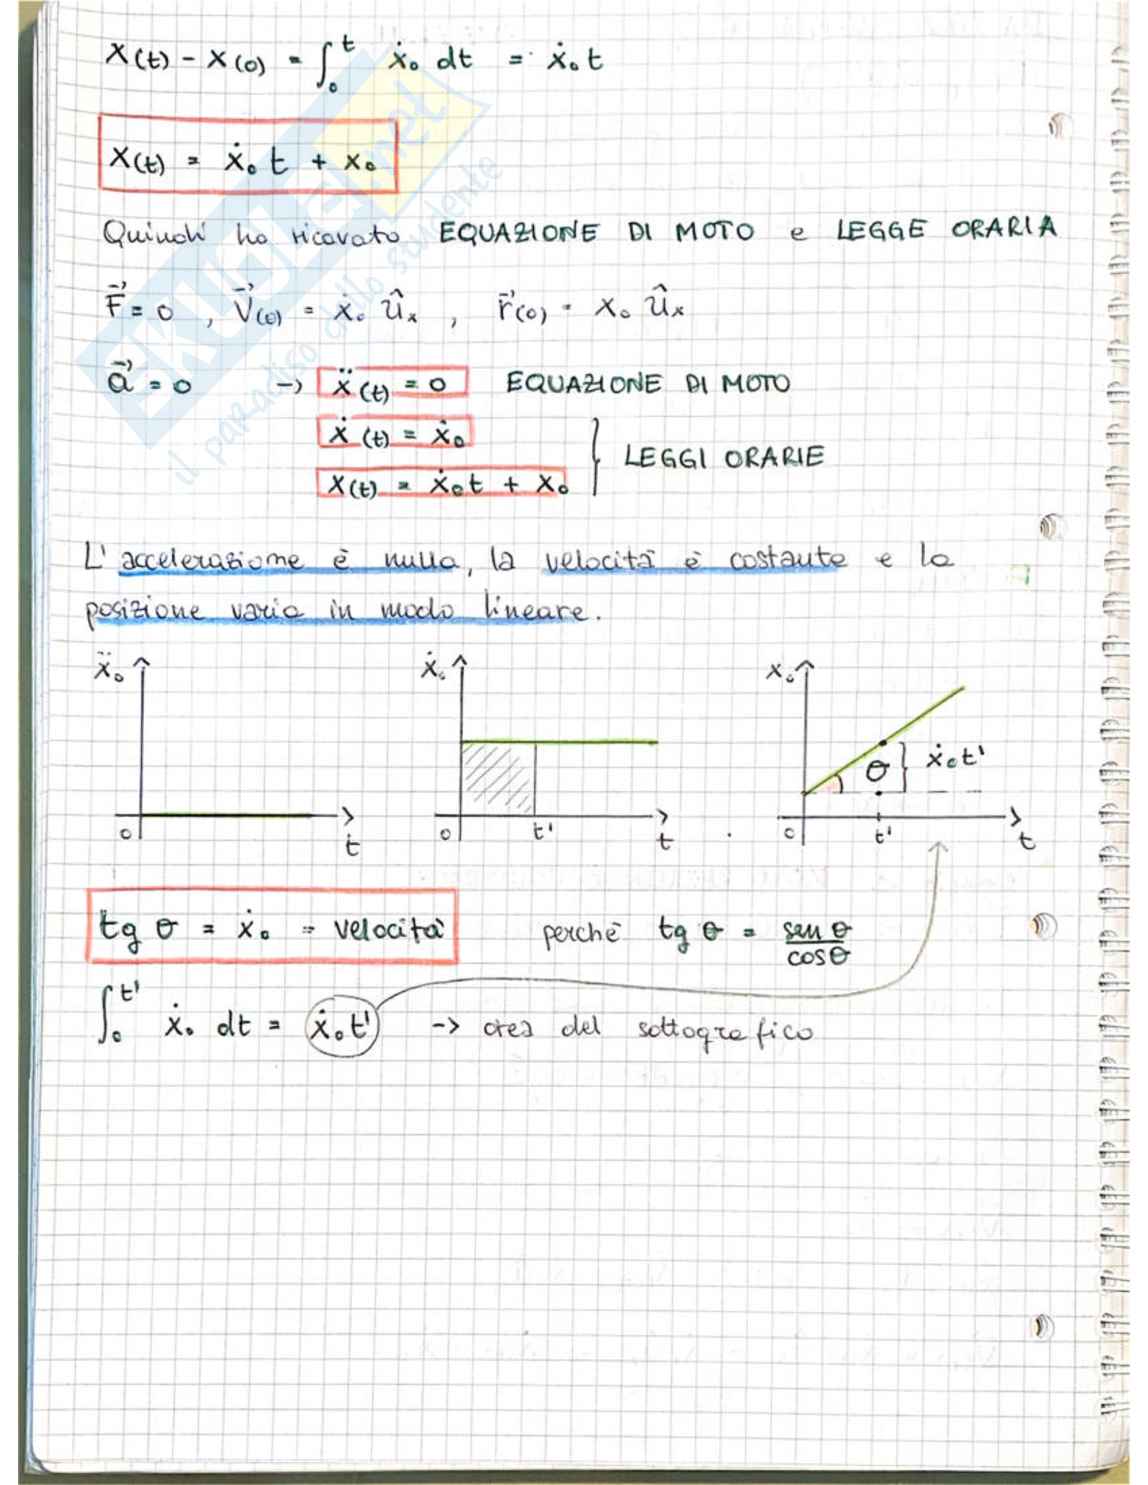 x(t) - x(0) = ∫₀ᵗ ẋ₀ dt = ẋ₀ t
x(t) = ẋ₀ t + x₀
Quindi ho ricavato EQUAZIONE DI MOTO e LEGGE ORARIA
F⃗ = 0 , V⃗(t) = ẋ₀ ûₓ , r⃗(0) = x₀ ûₓ
a⃗ = 0 -> ẍ(t) = 0 EQUAZIONE DI MOTO
ẋ(t) = ẋ₀
x(t) = ẋ₀t + x₀ } LEGGI ORARIE
L'accelerazione è nulla, la velocità è costante e la
posizione varia in modo lineare.
ẍ₀ 0 t
ẋ₀ 0 t' t
x₀ θ } ẋ₀t' 0 t' t
tg θ = ẋ₀ = velocità perché tg θ = sen θ / cos θ
∫₀ᵗ' ẋ₀ dt = ẋ₀t' -> area del sottografico
SKUOLA.net
il paradiso dello studente